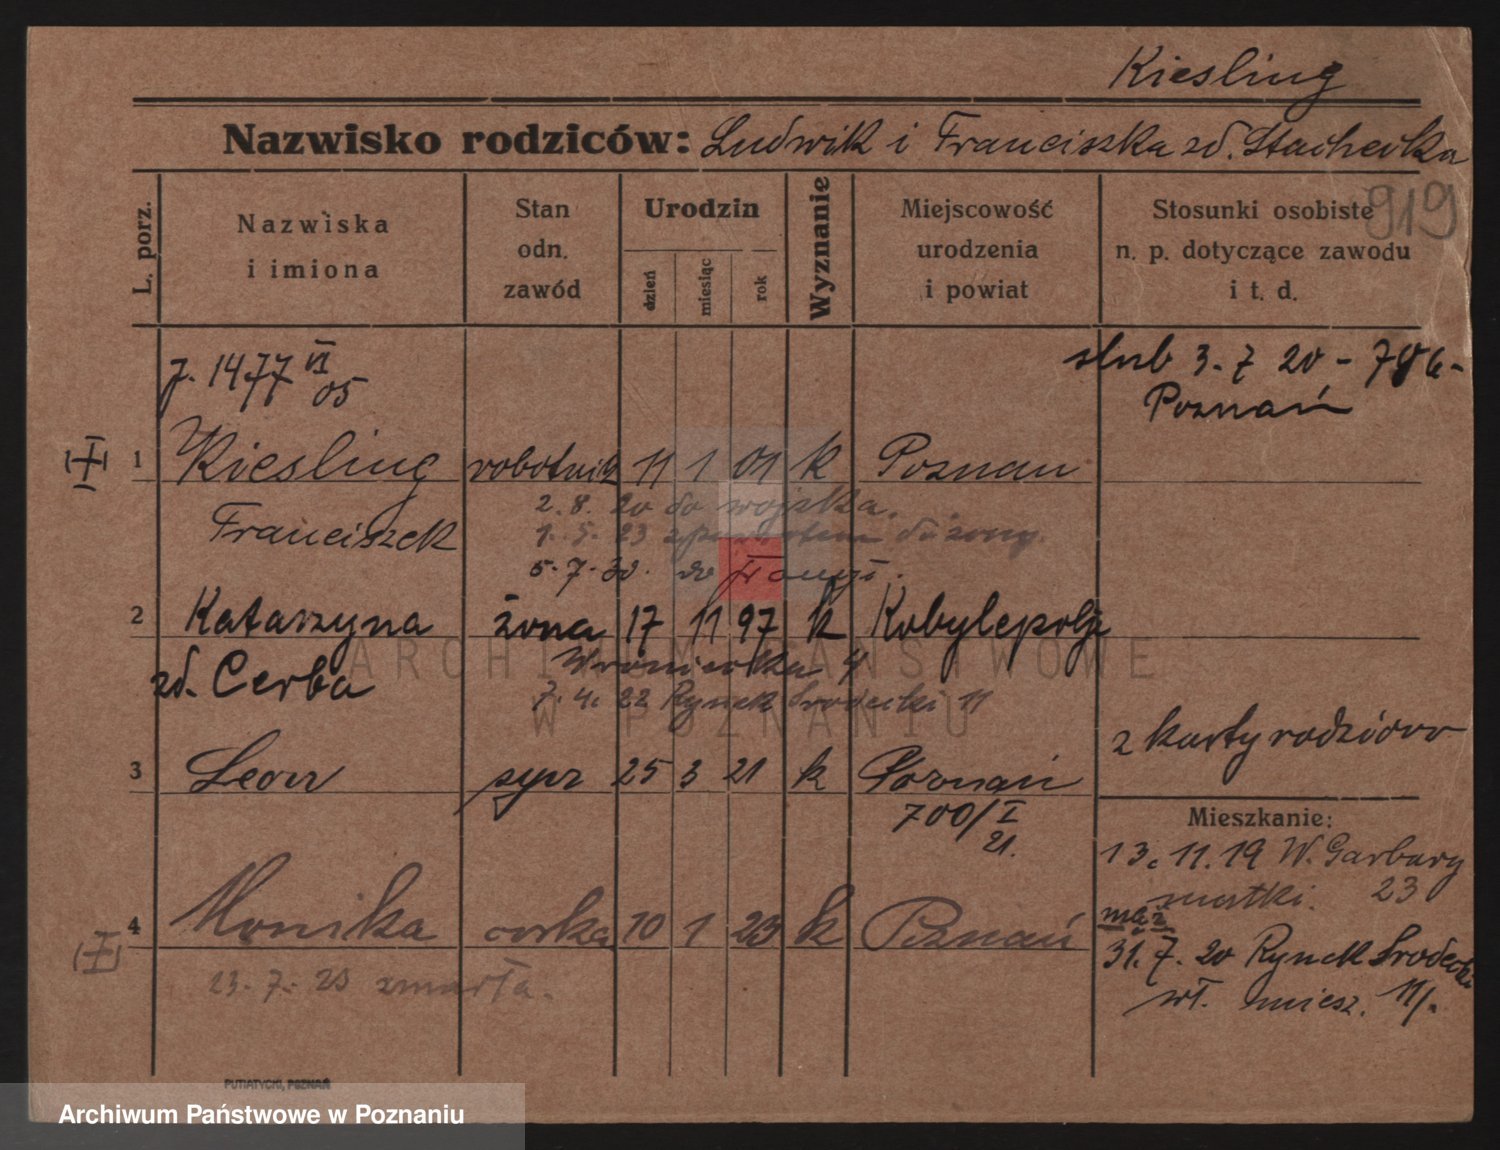 Kiesling
Nazwisko rodziców: Ludwik i Franciszka zd. Stachecka
919
L. porz.
Nazwiska
i imiona
Stan
odn.
zawód
Urodzin
dzień
miesiąc
rok
Wyznanie
Miejscowość
urodzenia
i powiat
Stosunki osobiste
n. p. dotyczące zawodu
i t. d.
J. 1477 VI
05
ślub 3. 7 20 -
Poznań
1 Kiesling robotnik 11 1 01 k Poznań
Franciszek
2. 8. 20 do wojska.
1. 5. 23 z powrotem do żony.
5. 7. 30. do Francji.
2 Katarzyna żona 17 11 97 k Kobylepolje
zd. Cerba
Wroniecka 4
7. 4. 22 Rynek Środecki 11
z karty rodziców
3 Leon syn 25 3 21 k Poznań
700/I
21.
Mieszkanie:
13. 11. 19 W. Garbary
matki. 23
mąż
31. 7. 20 Rynek Środecki
wł. miesz. 11/.
4 Monika córka 10 1 23 k Poznań
23. 7. 23 zmarła.
PUTIATYCKI, POZNAŃ
ARCHIWUM PAŃSTWOWE
W POZNANIU
Archiwum Państwowe w Poznaniu